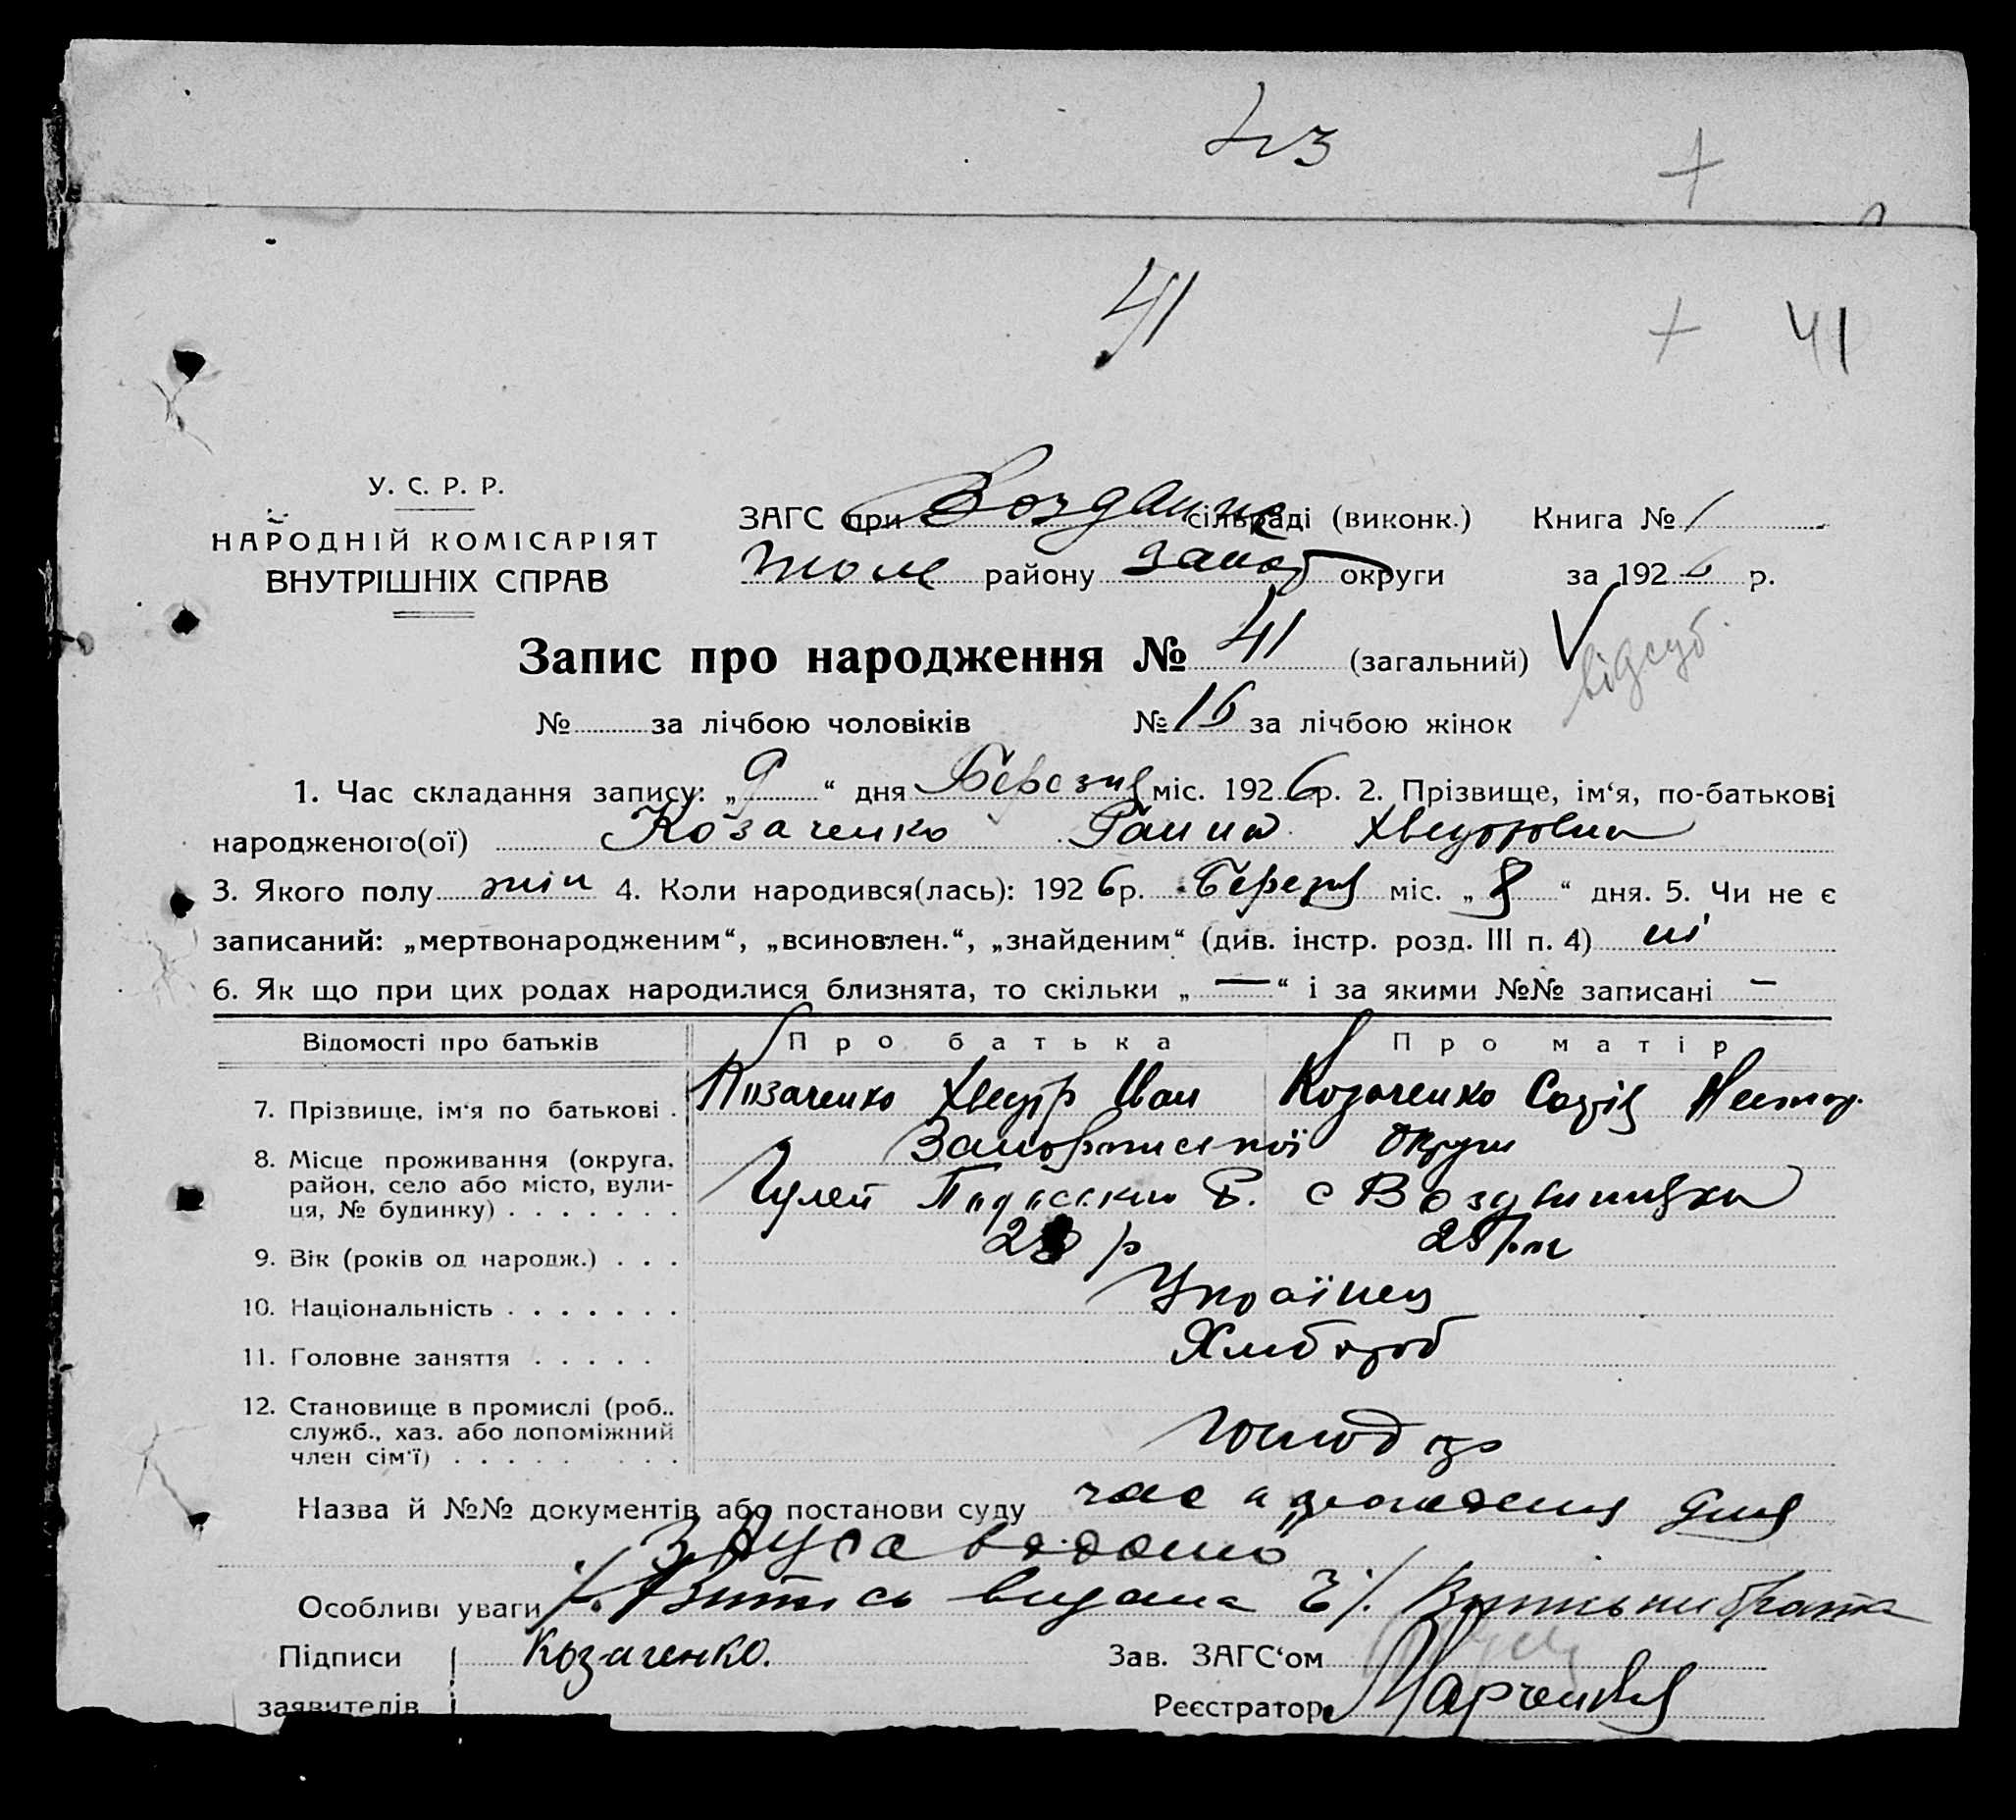 43
+
41
+ 41
У. С. Р. Р.
НАРОДНІЙ КОМІСАРІЯТ
ВНУТРІШНІХ СПРАВ
ЗАГС при Воздвин сільраді (виконк.) Книга № 1
району Запор округи за 1926 р.
Запис про народження № 41 (загальний) V
відсут.
№ за лічбою чоловіків № 16 за лічбою жінок
1. Час складання запису: „9“ дня Березня міс. 1926 р. 2. Прізвище, ім‘я, по-батькові
народженого(ої) Козаченко Ганна Хведоровна
3. Якого полу жін 4. Коли народився(лась): 1926 р. Березня міс. „8“ дня. 5. Чи не є
записаний: „мертвонародженим“, „всиновлен.“, „знайденим“ (див. інстр. розд. III п. 4) ні
6. Як що при цих родах народилися близнята, то скільки „—“ і за якими №№ записані —
Відомості про батьків Про батька Про матір
7. Прізвище, ім‘я по батькові . Козаченко Хведір Иван Козаченко Софія Нестор.
8. Місце проживання (округа, Запоріжської округи
район, село або місто, вули-
ця, № будинку) . . . . . . . Гуляй Р. с Воздвиживка
9. Вік (років од народж.) . . . р
10. Національність . . . . . . . Українец
11. Головне заняття . . . . . Хлибороб
12. Становище в промислі (роб..
служб., хаз. або допоміжний
член сім‘ї) . . . . . . . . .
Назва й №№ документів або постанови суду час народження дня
Особливі уваги Витись видана
Підписи Козаченко. Зав. ЗАГС‘ом
заявителів Реєстратор Марченко